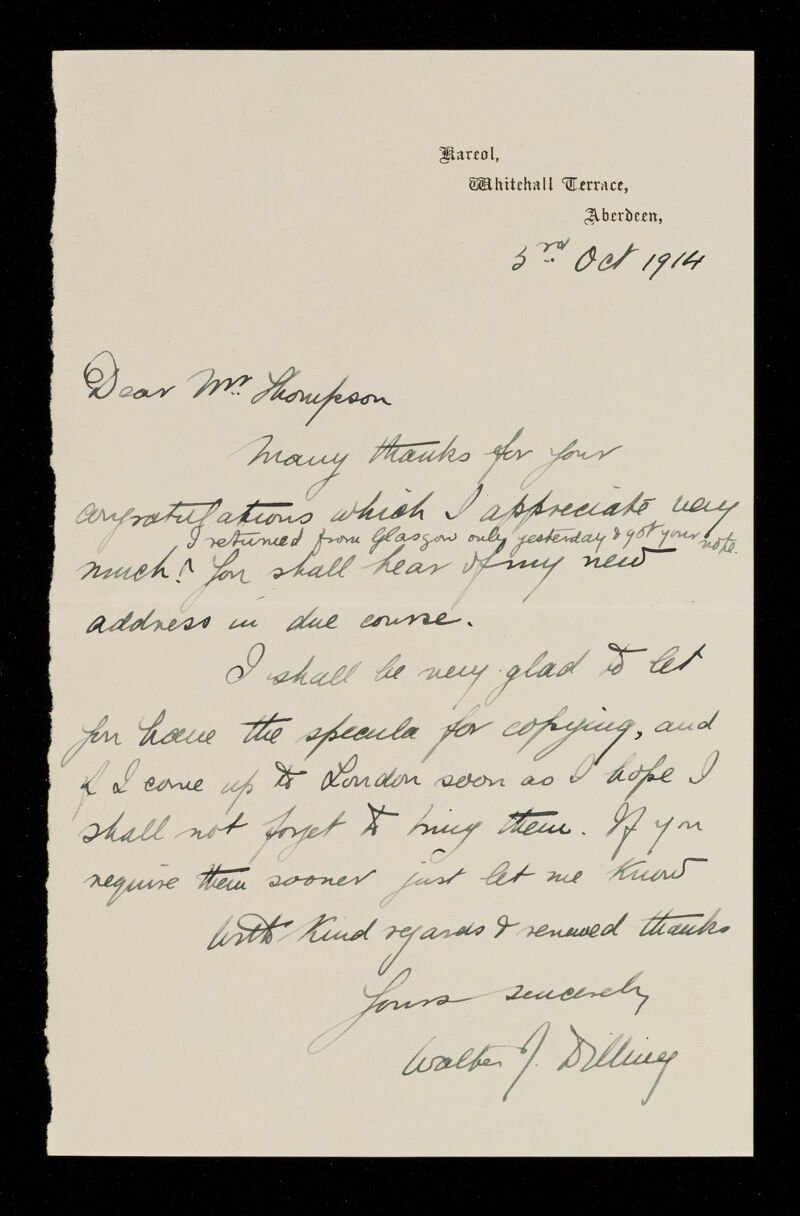 Kareol,
Whitehall Terrace,
Aberdeen,
3rd Oct 1914
Dear Mr. Thompson
Many thanks for your
congratulations which I appreciate very
I returned from Glasgow only yesterday & got your note.
much. You shall hear of my new
address in due course.
I shall be very glad to let
you have the specula for copying, and
if I come up to London soon as I hope I
shall not forget to bring them. If you
require them sooner just let me know
With kind regards & renewed thanks
Yours sincerely
Walter J. Dilling